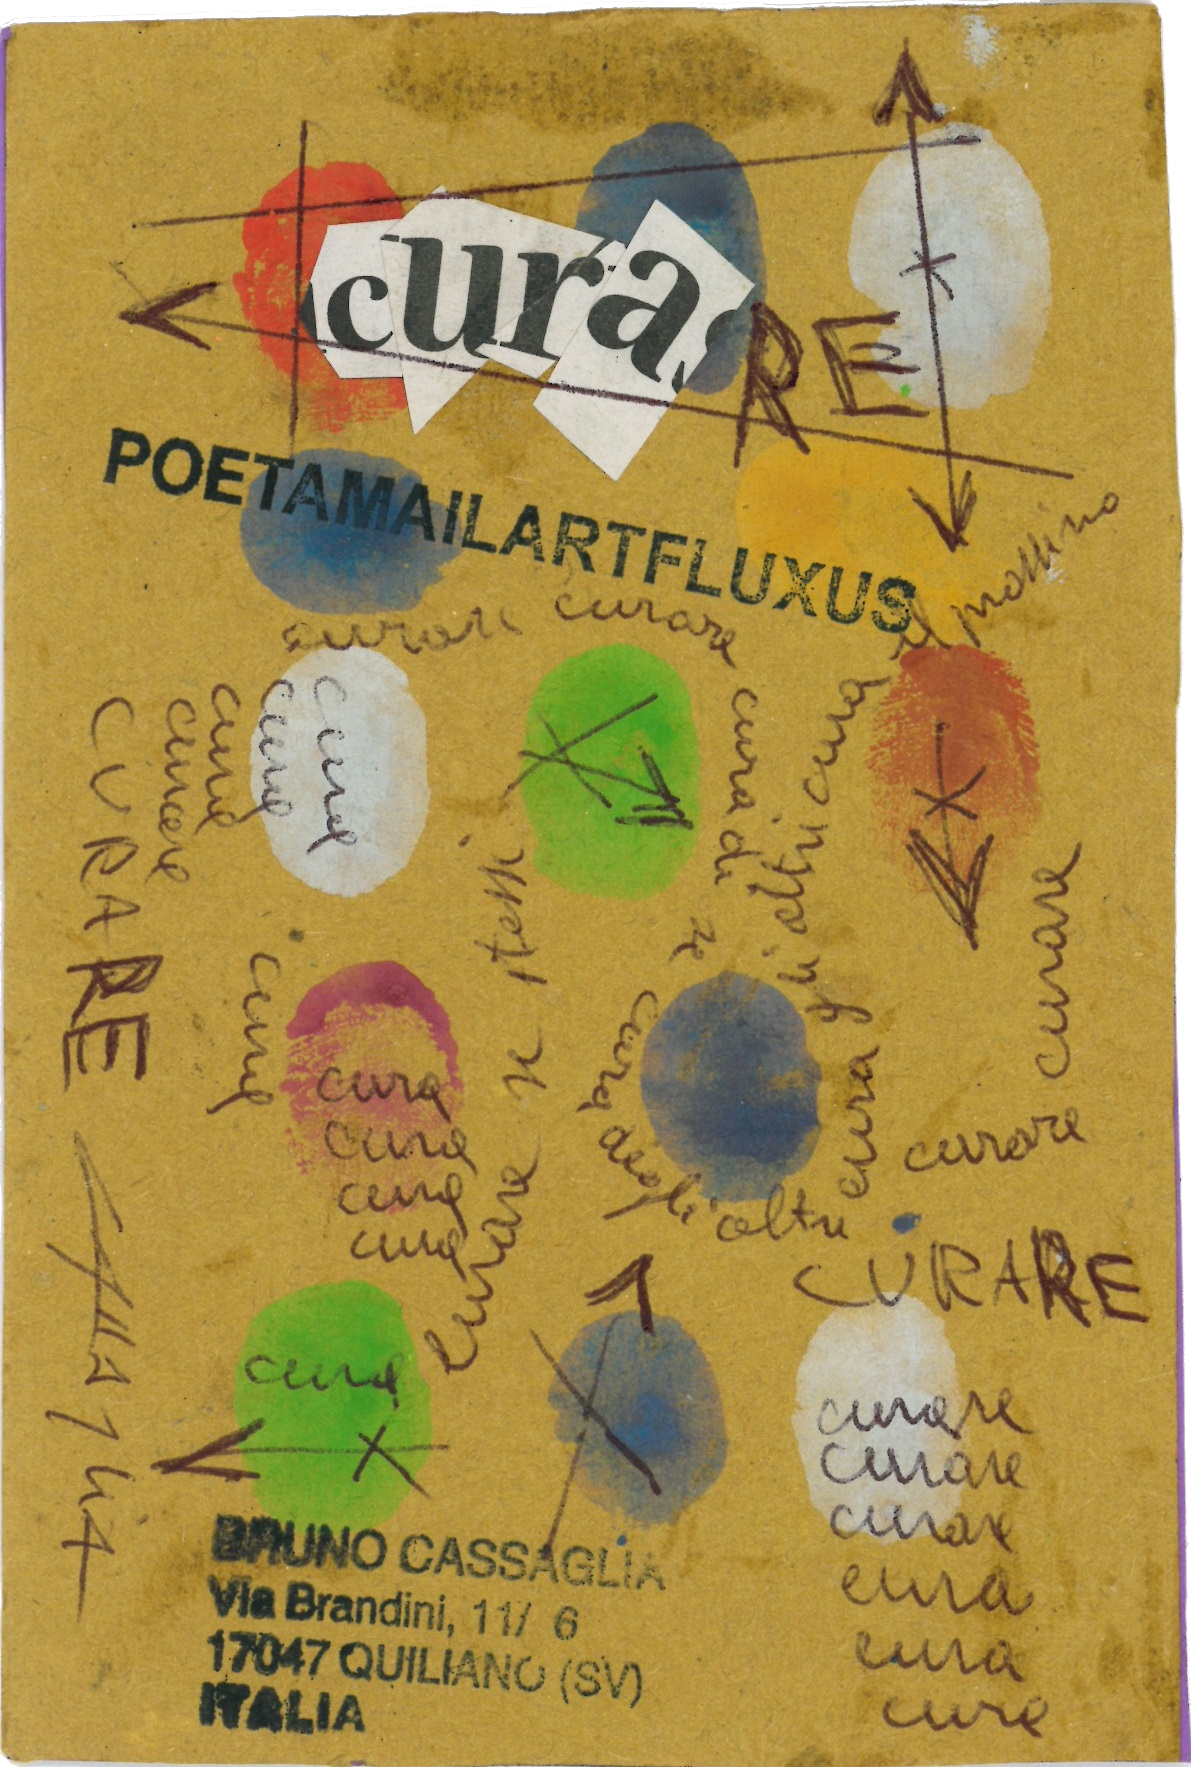 cura
RE
POETAMAILARTFLUXUS
curare curare
cura di se
cura degli altri
cura gli altri cura
il prossimo
cura
cura
cura
curare
CURARE
cura
curare se stessi
cura
cura
cura
cura
curare curare
CURARE
cura
curare
curare
curare
cura
cura
cura
BRUNO CASSAGLIA
Via Brandini, 11/ 6
17047 QUILIANO (SV)
ITALIA